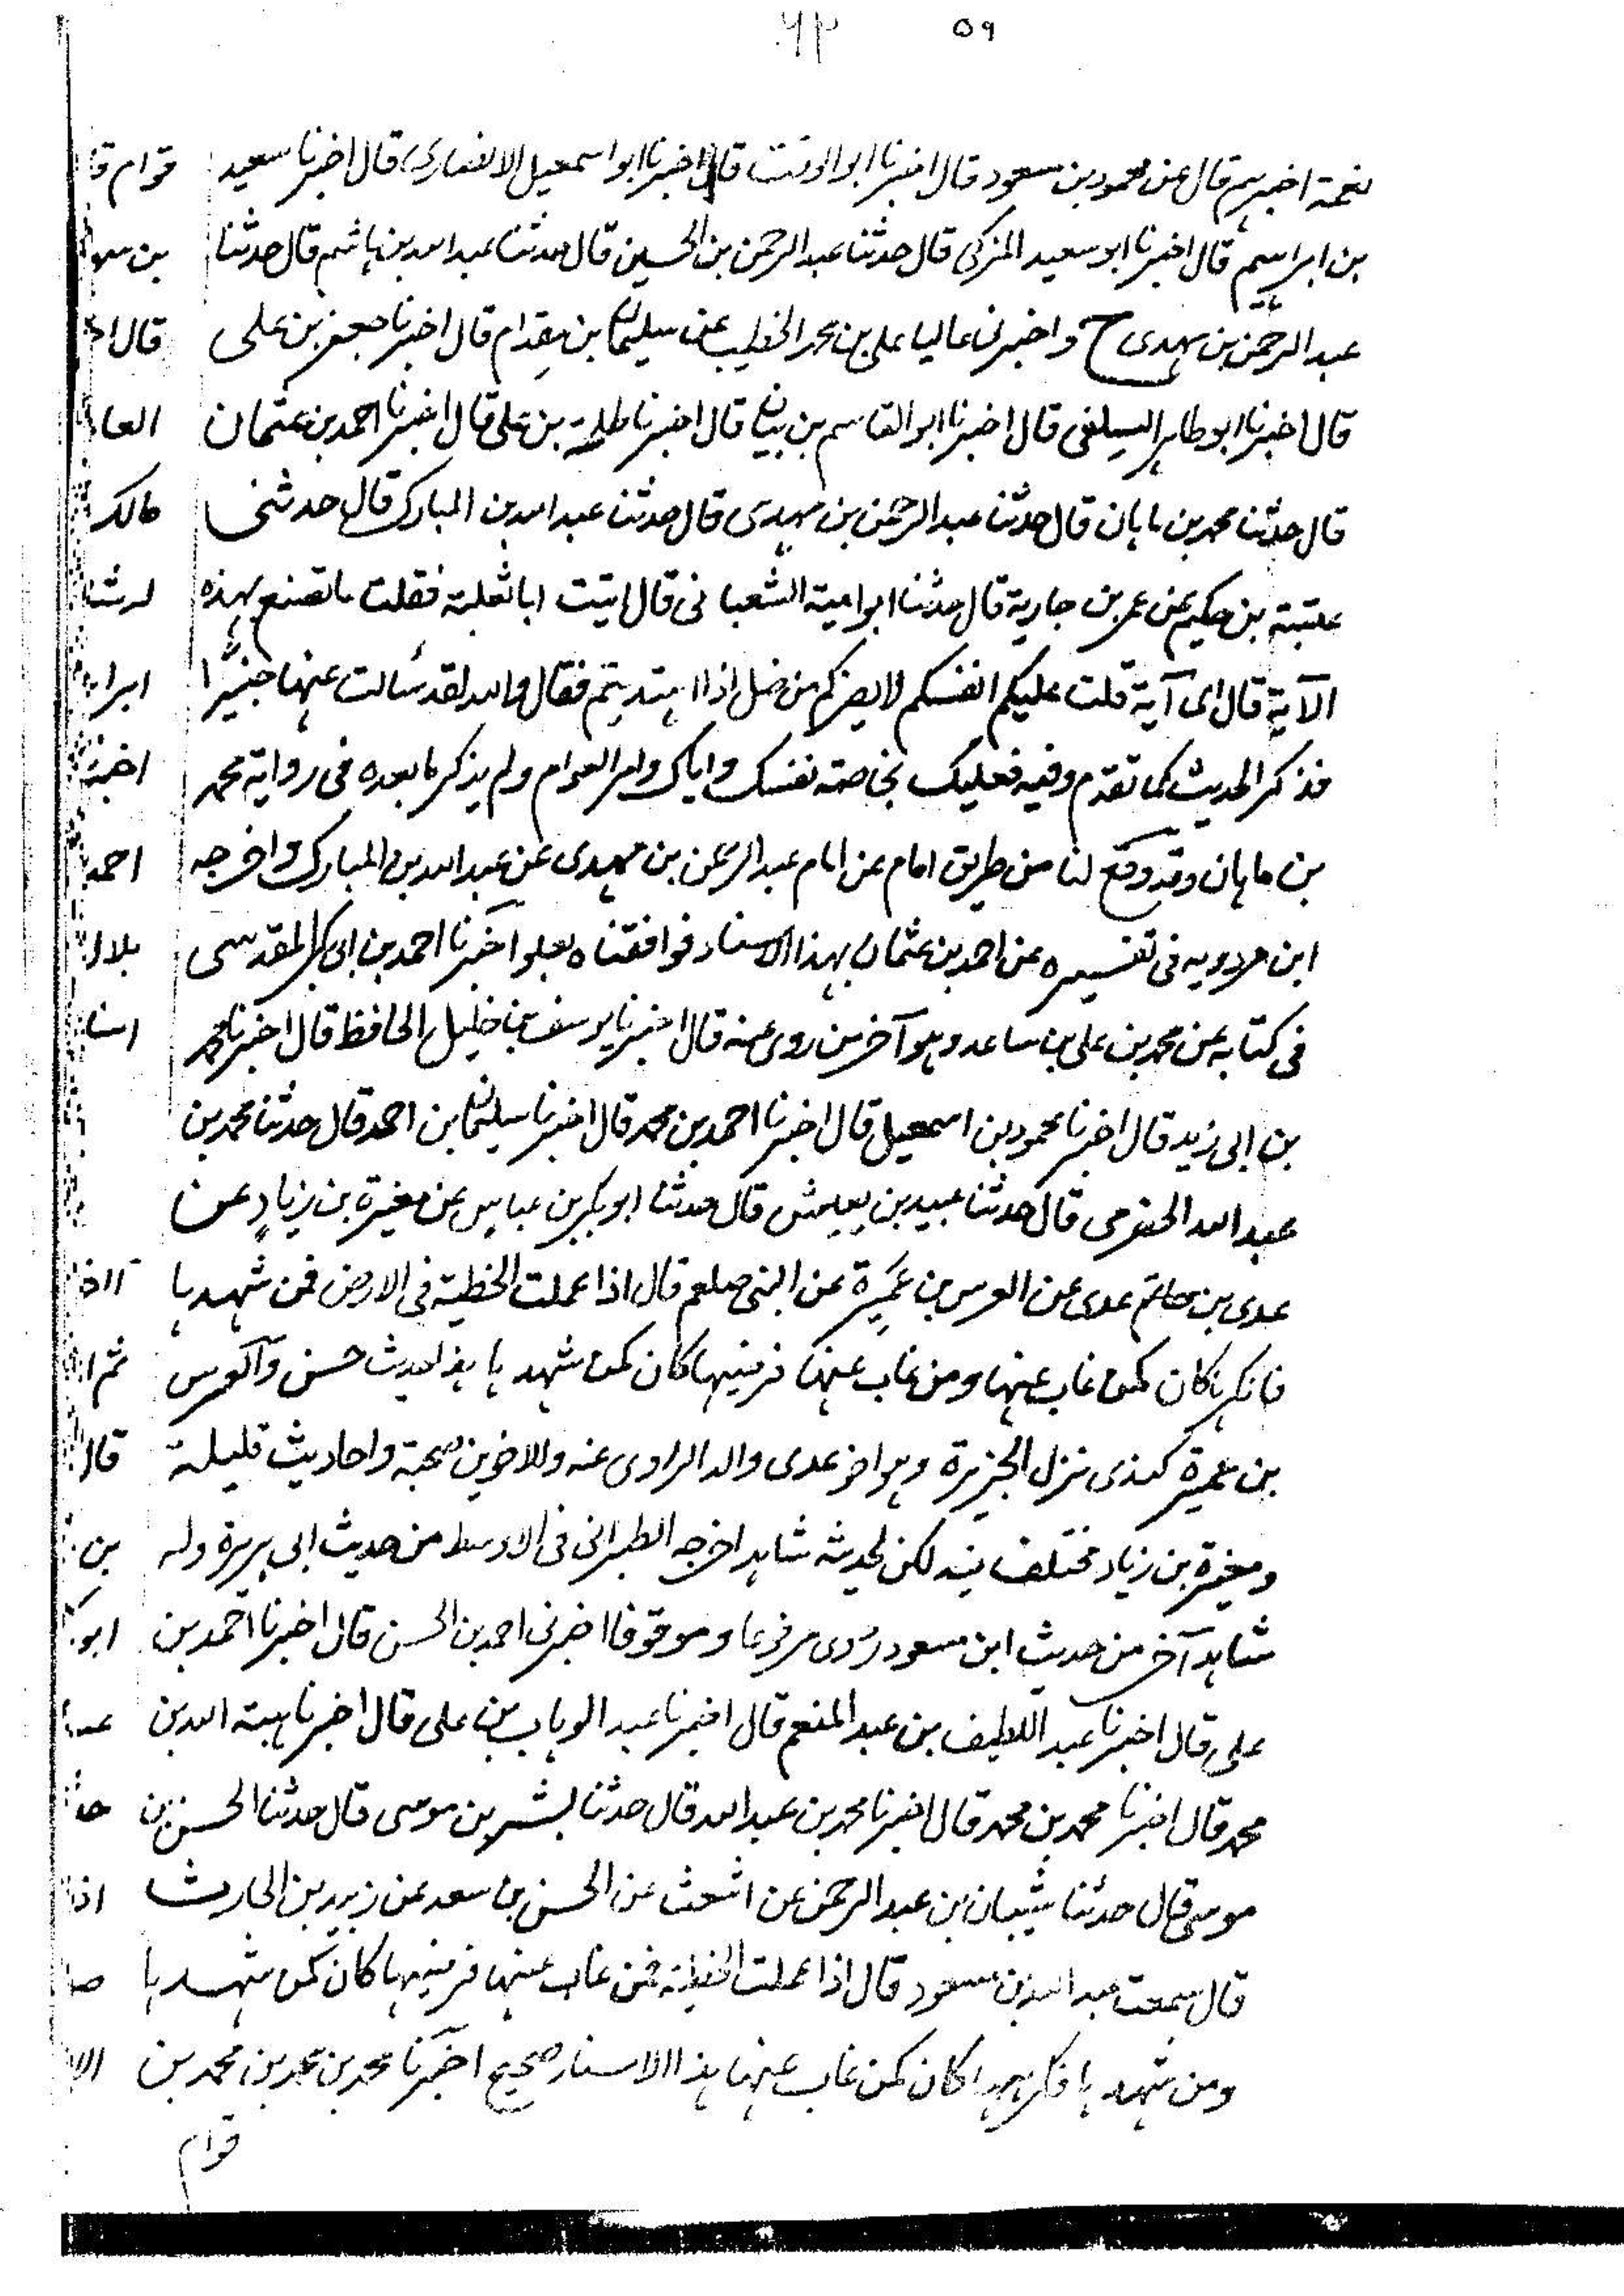 ٥٩ ٦٣
نعمة اخبرهم قال عن محمود بن مسعود قال اخبرنا ابو الوقت قال اخبرنا ابو اسمعيل الانصاري قال اخبرنا سعيد
بن ابراهيم قال اخبرنا ابو سعيد المزكى قال حدثنا عبد الرحمن بن الحسين قال حدثنا عبد الله بن هاشم قال حدثنا
عبد الرحمن بن مهدى ح واخبرنى عاليا على بن محمد الخطيب عن سليمان بن مقدام قال اخبرنا جعفر بن على
قال اخبرنا ابو طاهر السلفى قال اخبرنا ابو القاسم بن بيان قال اخبرنا طلحة بن على قال اخبرنا احمد بن عثمان
قال حدثنا محمد بن ماهان قال حدثنا عبد الرحمن بن مهدى قال حدثنا عبد الله بن المبارك قال حدثنى
عتبة بن حكيم عن عمر بن جارية قال حدثنا ابو امية الشعبانى قال اتيت ابا ثعلبة فقلت ما تصنع بهذه
الآية قال اى آية قلت عليكم انفسكم لا يضركم من ضل اذا اهتديتم فقال والله لقد سألت عنها خبيرًا
فذكر الحديث كما تقدم وفيه فعليك بخاصة نفسك واياك وامر العوام ولم يذكر ما بعده فى رواية محمد
بن ماهان وقد وقع لنا من طريق امام عن امام عبد الرحمن بن مهدى عن عبد الله بن المبارك واخرجه
ابن مردويه فى تفسيره عن احمد بن عثمان بهذا الاسناد فوافقناه بعلو اخبرنا احمد بن ابى بكر المقدسى
فى كتابه عن محمد بن على بن ساعد وهو آخر من روى عنه قال اخبرنا يوسف بن خليل الحافظ قال اخبرنا محمد
بن ابى زيد قال اخبرنا محمود بن اسمعيل قال اخبرنا احمد بن محمد قال اخبرنا سليمان بن احمد قال حدثنا محمد بن
عبد الله الحضرمى قال حدثنا عبيد بن يعيش قال حدثنا ابو بكر بن عباس عن مغيرة بن زيادٍ عن
عدى بن عدى عن العرس بن عَمِيرَة عن النبى صلعم قال اذا عملت الخطية فى الارض فمن شهدها
فانكرها كان كمن غاب عنها ومن غاب عنها فرضيها كان كمن شهدها هذا حديث حسن والعرس
بن عميرة كندى نزل الجزيرة وهو اخو عدى والد الراوى عنه وللاخوين صحبة واحاديث قليلة
ومغيرة بن زياد مختلف فيه لكن لحديثه شاهد اخرجه الطبرانى فى الاوسط من حديث ابى هريرة وله
شاهد آخر من حديث ابن مسعود روى مرفوعا وموقوفا اخبرنى احمد بن الحسن قال اخبرنا احمد بن
على قال اخبرنا عبد اللطيف بن عبد المنعم قال اخبرنا عبد الوهاب بن على قال اخبرنا هبة الله بن
محمد قال اخبرنا محمد بن محمد قال اخبرنا محمد بن عبد الله قال حدثنا بشر بن موسى قال حدثنا الحسن بن
موسى قال حدثنا شيبان بن عبد الرحمن عن اشعث عن الحسن بن سعد عن زبيد بن الحارث
قال سمعت عبد الله بن مسعود قال اذا عملت الخطية فمن غاب عنها فرضيها كان كمن شهدها
ومن شهدها فكرهها كان كمن غاب عنها هذا الاسناد صحيح اخبرنا محمد بن محمد بن محمد بن
قوام